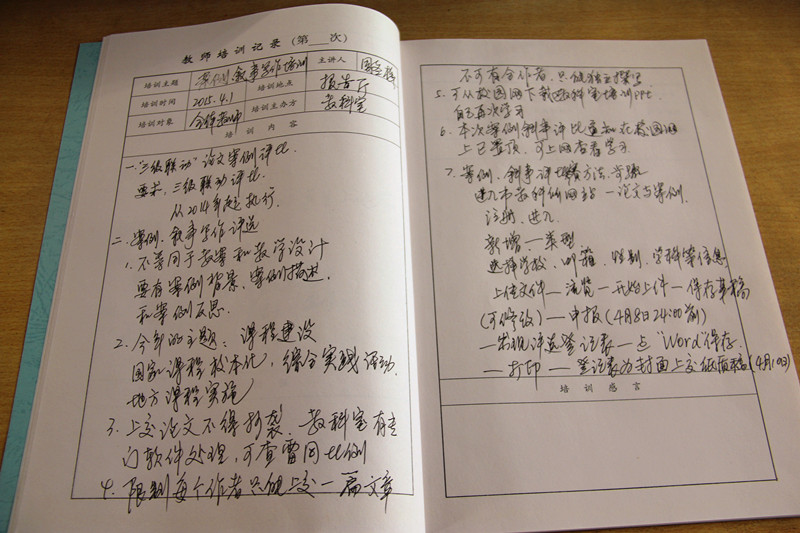 教师培训记录（第__次）
培训主题 案例、叙事写作培训 主讲人
培训时间 2015.4.1 培训地点 报告厅
培训对象 全体教师 培训主办方 教科室
培训内容
一."三级联动"论文案例评比
要求：三级联动评比.
从2014年起执行.
二.案例、叙事写作评选
1. 不等同于教案和教学设计
要有案例背景、案例描述
和案例反思.
2. 今年的主题：课程建设
国家课程校本化，综合实践活动.
地方课程实施
3. 上交论文不得抄袭、教科室有专
门软件处理，可查雷同比例
4. 限制每个作者只能上交一篇文章
不可有合作者，只能独立撰写
5. 可从校园网下载教科室培训ppt.
自己再次学习
6. 本次案例叙事评比通知在校园网
上已置顶，可上网查看学习
7. 案例、叙事评比方法、步骤
进入市教科所网站一论文与案例.
注册、进入
新增一类型
选择学校、邮箱、性别、学科等信息
上传文件一浏览一开始上传一保存草稿
(可修改)一申报(4月8日24:00前)
一出现评选登记表一点"Word"保存.
一打印一登记表为封面上交纸质稿(4月10日)
培训感言